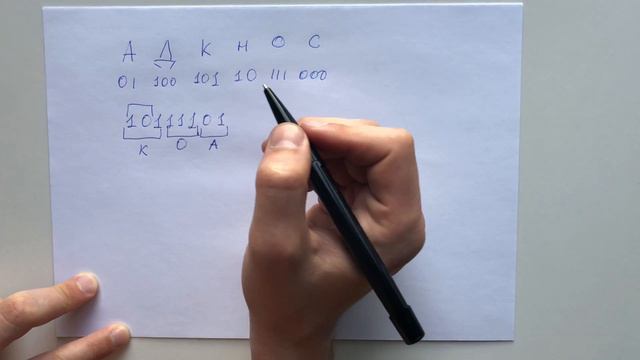 А Д К Н О С
01 100 101 10 111 000
10111101
К О А